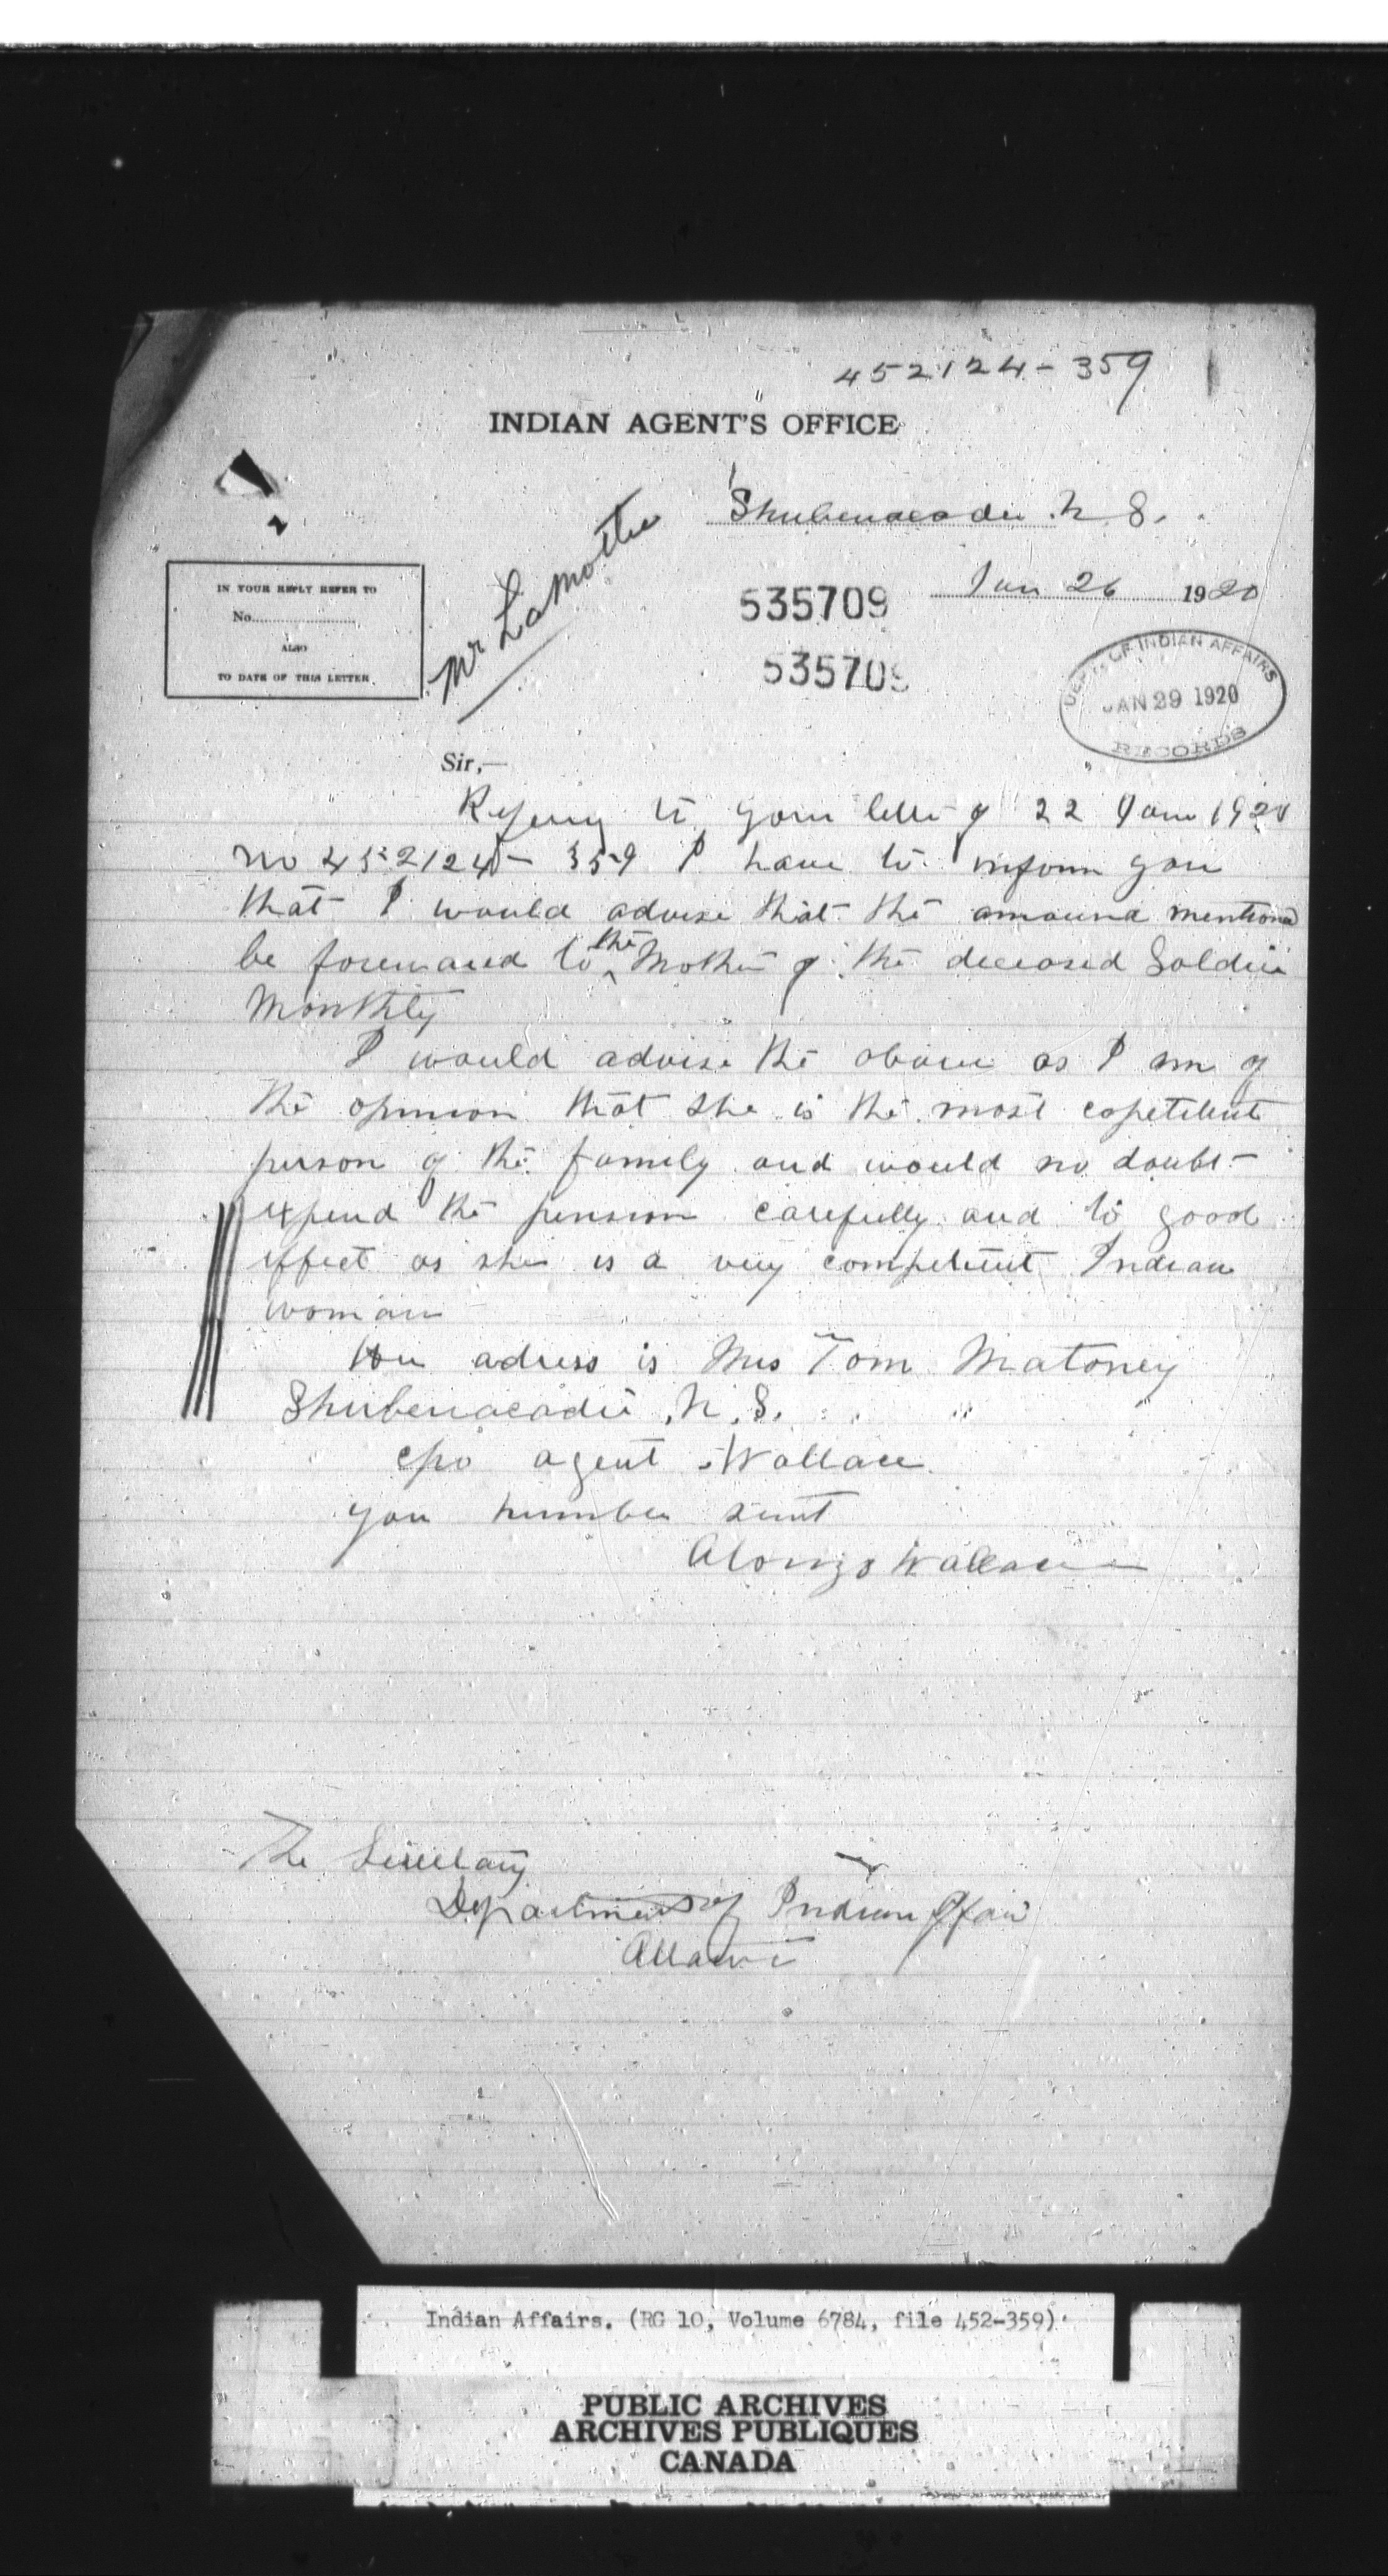 452124-359
INDIAN AGENT'S OFFICE
Shubenacadie N S.
Jan 26 1920
IN YOUR REPLY REFER TO
No.
ALSO
TO DATE OF THIS LETTER
Mr LaMothe
535709
535709
DEPT. OF INDIAN AFFAIRS
JAN 29 1920
RECORDS
Sir,—
to your letter of 22 Jan 1920
no 452124 - 359 I have to inform you
that I would advise that the amound mentioned
be forewared to the Mother of the deceased Soldier
Monthly
I would advise the above as I am of
the opinion that she is the most
person of the family and would no doubt
expend the pension carefully and to good
effect as she is a very competent Indian
woman
Her adress is Mrs Tom Matoney
Shubenacadie, N.S.
c/o agent Wallace
your humble sevt
Alonzo Wallace
The Secretary
Department of Indian Affair
Indian Affairs. (RG 10, Volume 6784, file 452-359)
PUBLIC ARCHIVES
ARCHIVES PUBLIQUES
CANADA